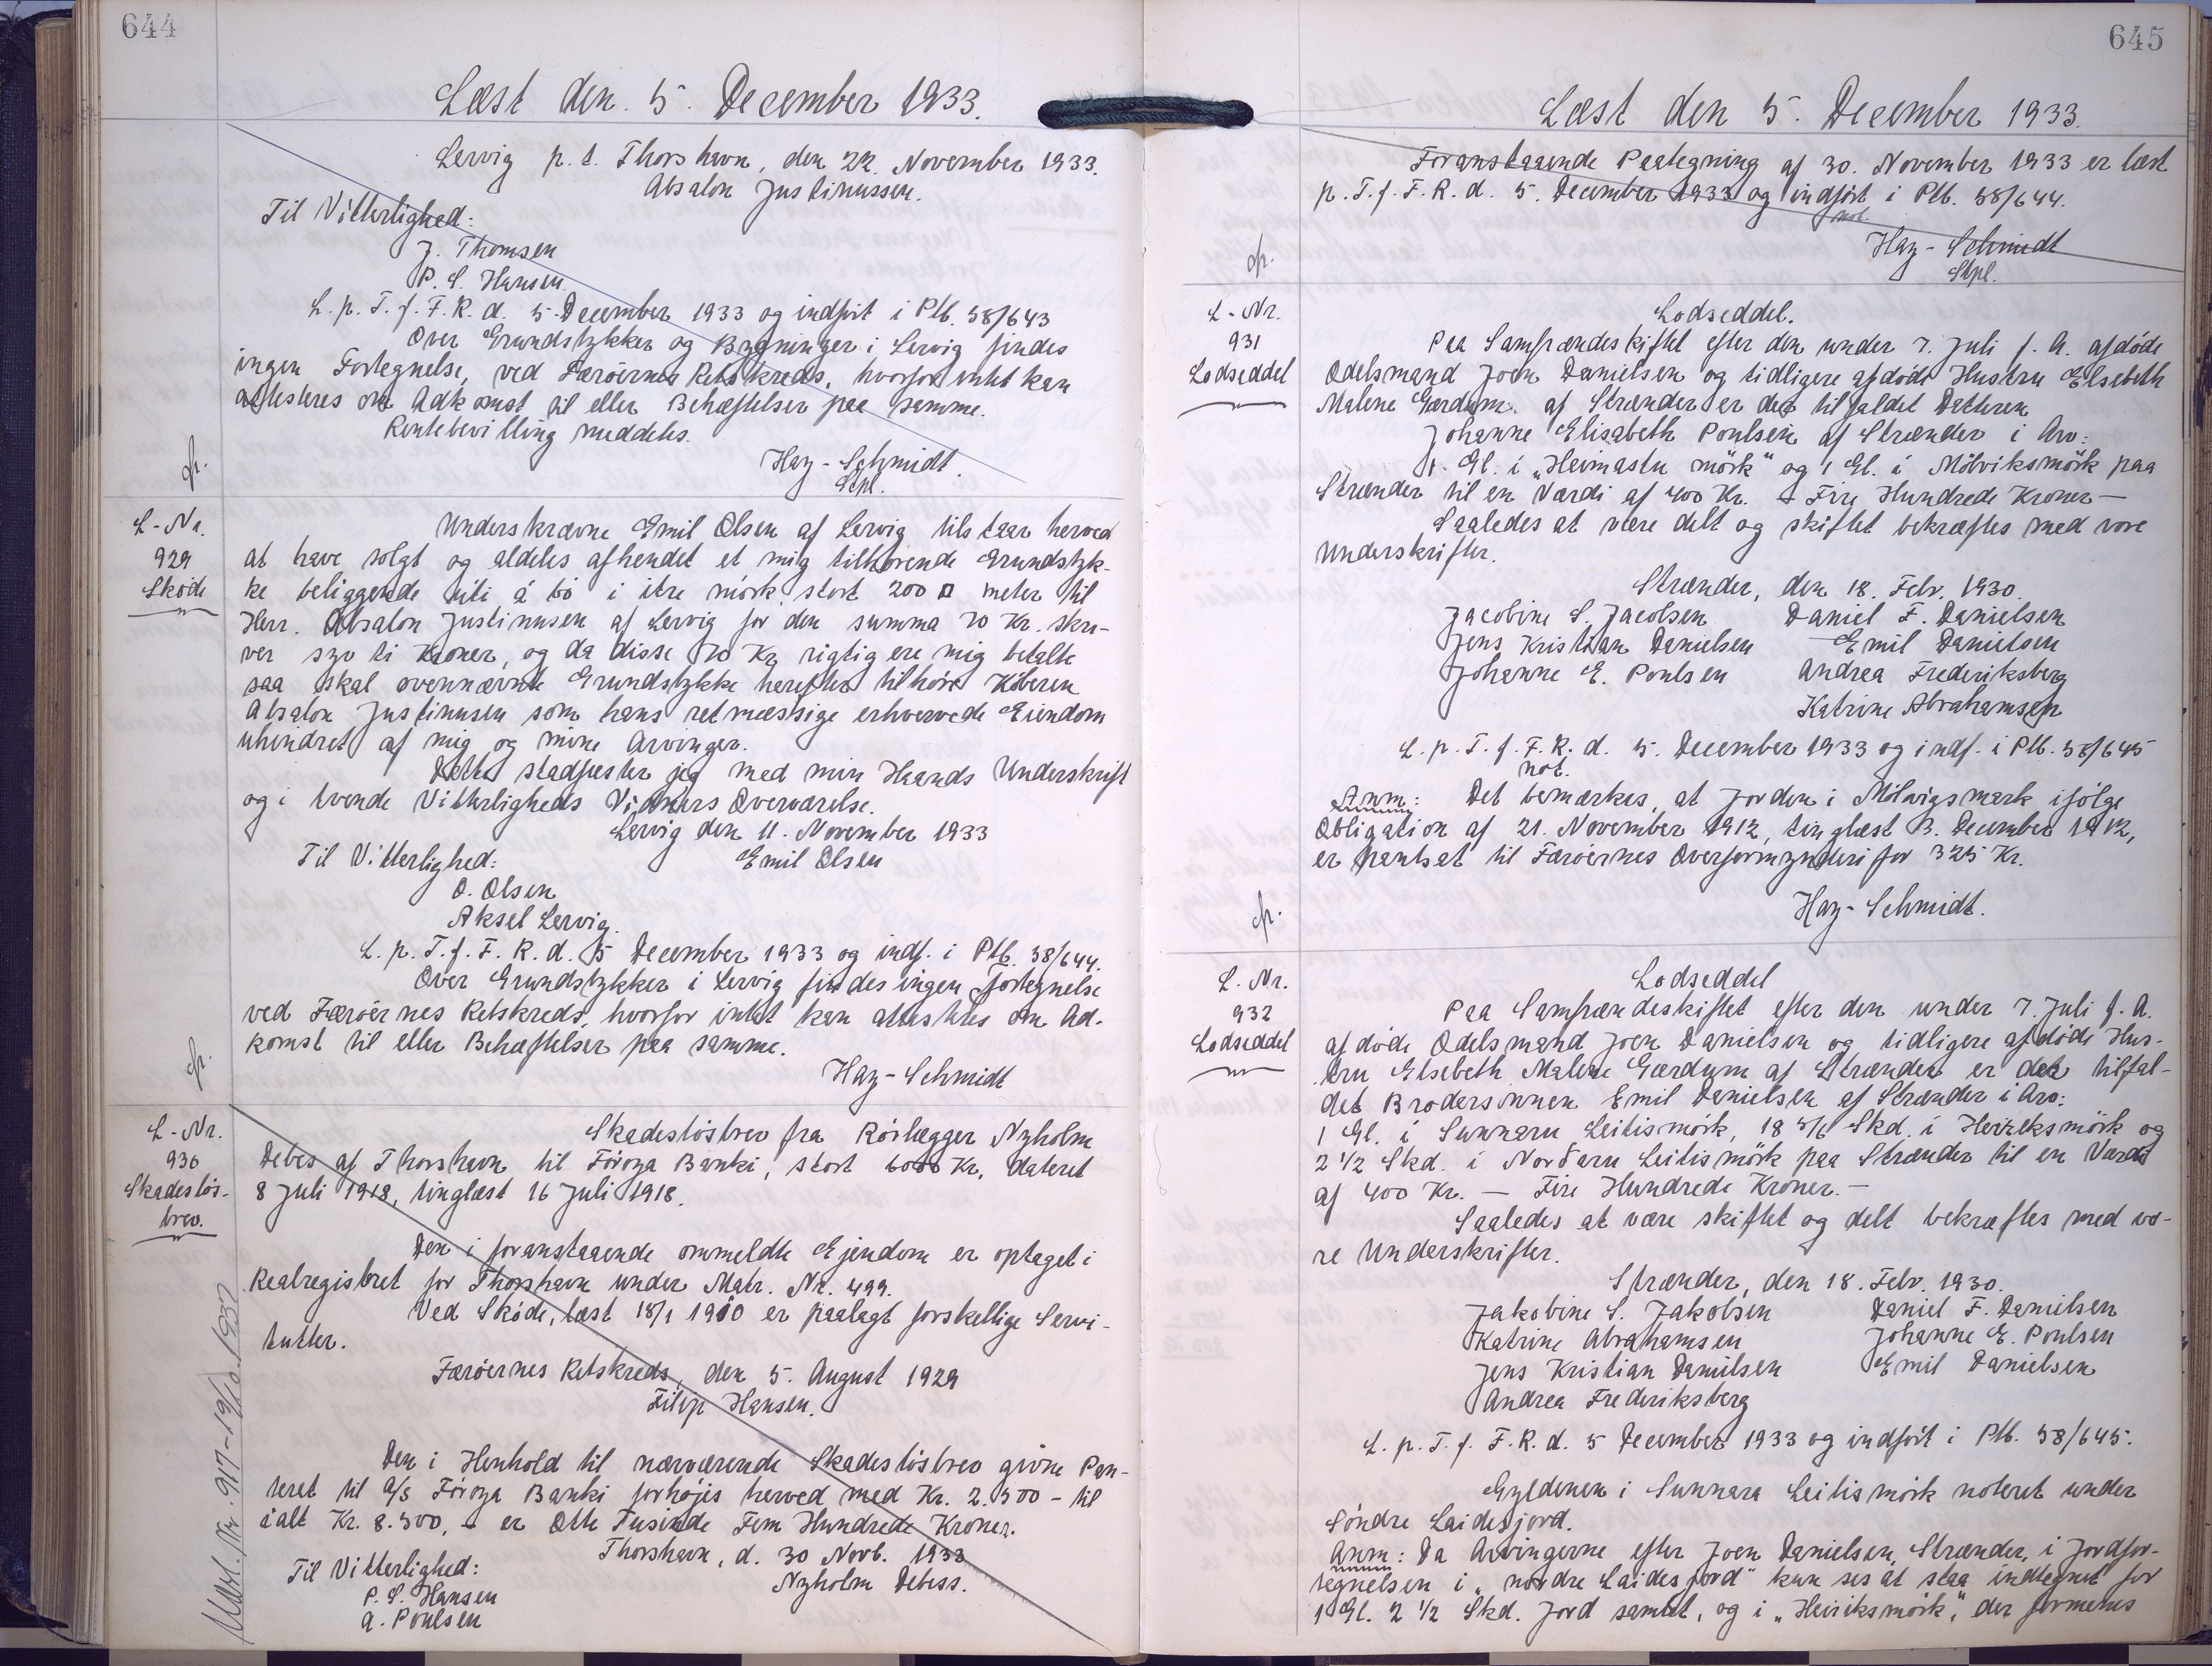 644
Læst den. 5. December 1933.
Lervig p. t. Thorshavn, den 22. November 1933.
Absalon Justinussen.
Til Vitterlighed:
J. Thomsen
P. S. Hansen.
L. p. T. f. F. R. d. 5. December 1933 og indført i Ptb. 38/643
Over Grundstykker og Bygninger i Lervig findes
ingen Fortegnelse, ved Færøernes Retskreds, hvorfor intet kan
attesteres om Adkomst til eller Behæftelser paa samme.
Rentebevilling meddeles.
Hay-Schmidt.
Stpl.
L-Nr.
929
Skøde
Underskrevne Emil Olsen af Lervig tilstaar herved
at have solgt og aldeles afhendet et mig tilhørende Grundstyk-
ke beliggende úti á bø i itre mørk stort 200 □ meter til
Herr. Absalon Justinusen af Lervig for den summa 70 Kr. skri-
ver syv ti Kroner, og da disse 70 Kr rigtig ere mig betalte
saa skal ovennævnte Grundstykke herefter tilhøre Køberen
Absalon Justinusen som hans retmæssige erhvervede Eiendom
uhindret af mig og mine Arvinger.
Dette stadfæster jeg med min Haands Underskrift
og i tvende Vitterligheds Vidners Overværelse.
Lervig den 11. November 1933
Til Vitterlighed: Emil Olsen
O. Olsen
Aksel Lervig.
L. p. T. f. F. R. d. 5 December 1933 og indf. i Ptb. 38/644.
Over Grundstykker i Lervig findes ingen Fortegnelse
ved Færøernes Retskreds, hvorfor intet kan attesteres om Ad-
komst til eller Behæftelser paa samme.
Hay-Schmidt
L-Nr.
930
Skadesløs-
brev.
Skadesløsbrev fra Rørlægger Nyholm
Debes af Thorshavn til Føroya Banki, stort 6000 Kr, dateret
8 Juli 1918, tinglæst 16 Juli 1918.
Den i foranstaaende ommeldte Ejendom er optaget i
Realregistret for Thorshavn under Matr. Nr. 499.
Ved Skøde, læst 18/1 1910 er paalagt forskellige Servi-
tutter.
Færøernes Retskreds, den 5. August 1929
Filip Hansen.
Den i Henhold til nærværende Skadesløsbrev givne Pan-
teret til A/S Føroya Banki forhøjes herved med Kr. 2.500 - til
ialt Kr. 8.500, - er Otte Tusinde Fem Hundrede Kroner.
Thorshavn, d. 30 Novb. 1933
Til Vitterlighed: Nyholm Debess.
P. S. Hansen
A. Poulsen
645
Læst den 5. December 1933.
Foranstaaende Paategning af 30. November 1933 er læst
p. T. f. F. R. d. 5. December 1933 og indført i Ptb. 38/644.
not.
Hay-Schmidt
Stpl.
L-Nr.
931
Lodseddel
Lodseddel.
Paa Samfrændeskiftet efter den under 7. Juli f. A. afdøde
Odelsmand Joen Danielsen og tidligere afdøde Hustru Elsebeth
Malene Gærdum af Strænder er der tilfaldet Datteren
Johanne Elisabeth Poulsen af Strænder i Arv:
1. Gl. i "Heimastu mørk" og 1 Gl. i Mølviksmørk paa
Strænder til en Værdi af 400 Kr. - Fire Hundrede Kroner-
Saaledes at være delt og skiftet bekræftes med vore
Underskrifter.
Strænder, den 18. Febr. 1930.
Jacobine S. Jacobsen Daniel F. Danielsen
Jens Kristian Danielsen Emil Danielsen
Johanne E. Poulsen Andrea Frederiksberg
Katrine Abrahamsen
L. p. T. f. F. R. d. 5. December 1933 og indf. i Ptb. 38/645
not.
Anm: Det bemærkes, at Jorden i Mølvigsmark ifølge
Obligation af 21. November 1912, tinglæst 3. December 1912,
er pantsat til Færøernes Overformynderi for 325 Kr.
Hay-Schmidt.
L. Nr.
932
Lodseddel
Lodseddel
Paa Samfrændeskiftet efter den under 7. Juli f. A.
afdøde Odelsmand Joen Danielsen og tidligere afdøde Hus-
tru Elsebeth Malene Gærdum af Strænder er der tilfal-
det Brodersønnen Emil Danielsen af Strænder i Arv:
1 Gl. i Sunnaru Leitismørk, 18 Skd. i Heiriksmørk og
2 1/2 Skd. i Norðaru Leitismørk paa Strænder til en Værdi
af 400 Kr. - Fire Hundrede Kroner.-
Saaledes at være skiftet og delt bekræftes med vo-
re Underskrifter.
Strænder, den 18. Febr. 1930.
Jakobine S. Jakobsen Daniel F. Danielsen
Katrine Abrahamsen Johanne E. Poulsen
Jens Kristian Danielsen Emil Danielsen
Andrea Frederiksberg
L. p. T. f. F. R. d. 5 December 1933 og indført i Ptb. 38/645.
Gyldenen i Sunnara Leitismørk noteret under
Søndre Laidesjord.
Anm: Da Arvingerne efter Joen Danielsen, Strænder, i Jordfor-
tegnelsen i "nordre Laidesjord" kun ses at staa indtegnet for
1 Gl. 2 1/2 Skd. Jord samlet, og i "Heiriksmørk," der formenes